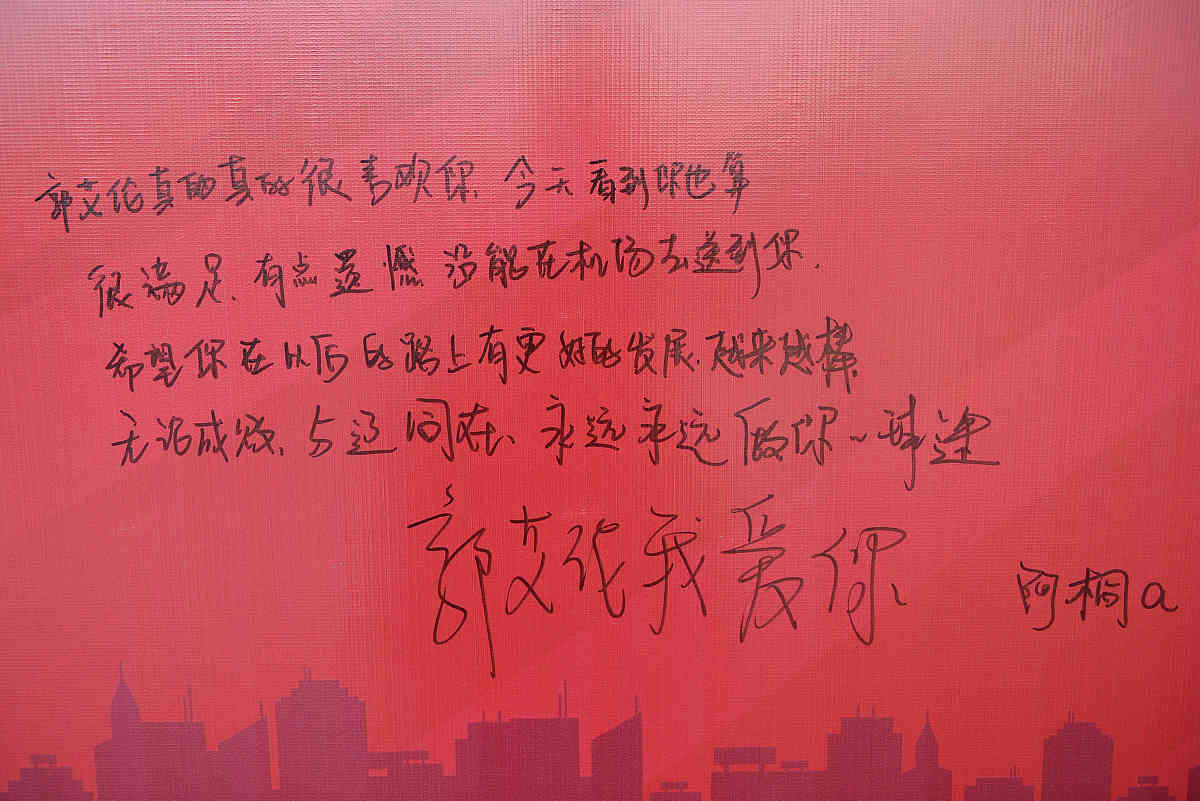 郭艾伦真的真的很喜欢你、今天看到你也算
很满足、有点遗憾没能在机场去送到你.
希望你在以后的路上有更好的发展.越来越棒.
无论成败、与辽同在、永远永远做你一球迷
郭艾伦我爱你、
阿桐a